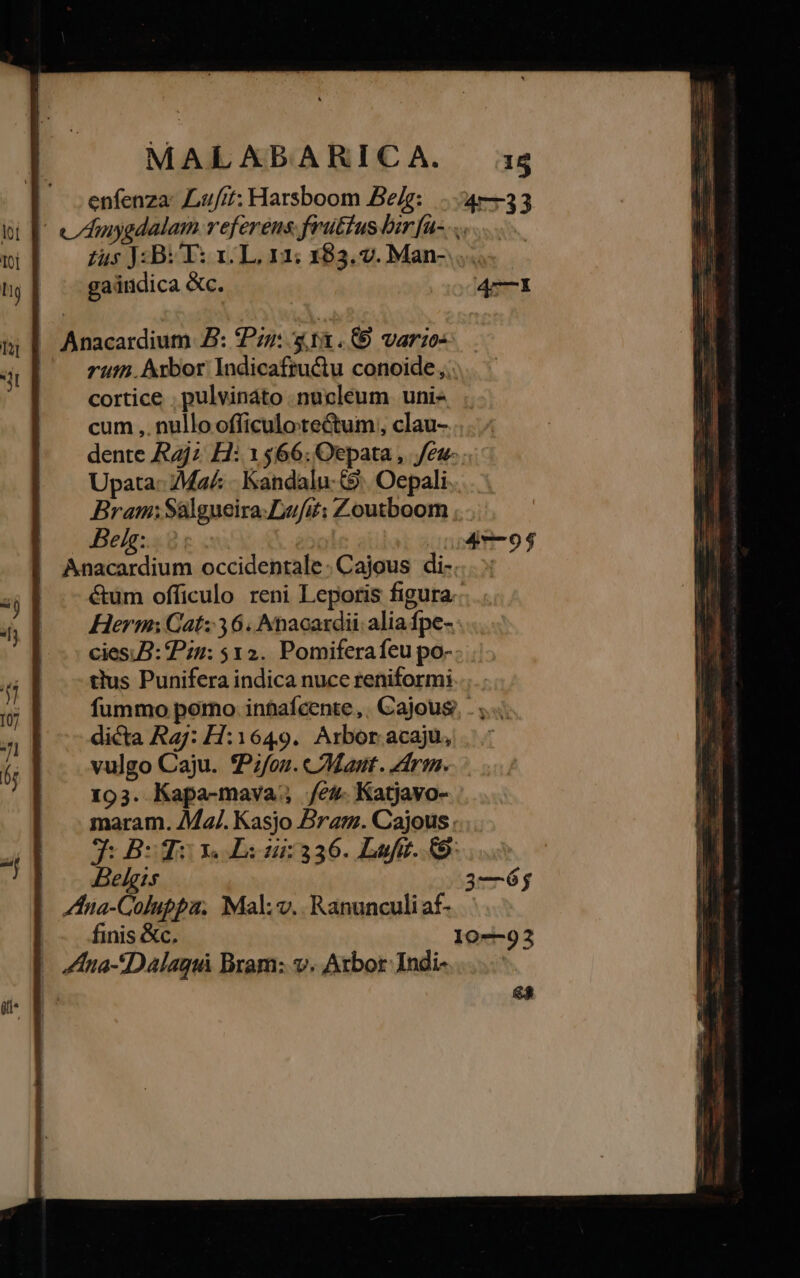 MALABARICA. 15
enſenza Luſit: Harsboom Belg: 4—33
Amygdalam referens fructus hirſu-
tus J:B: T: 1. L. 11; 183. v. Man-
gaindica &c. 4—1
Anacardium B: Pin: 511. & vario-
rum. Arbor Indica fructu conoide,
cortice pulvináto nucleum uni-
cum, nullo officulo tectum, clau-
dente Raji H: 1566. Oepata, ſeu
Upata Mal: Kandalu & Oepali
Bram: Salgueira Luſit: Zoutboom
Belg: 4—95
Anacardium occidentale Cajous di-
ctum officulo reni Leporis figura
Herm: Cat: 36. Anacardii alia ſpe-
cies B: Pin: 512. Pomifera ſeu po-
tius Punifera indica nuce reniformi
ſummo pomo innaſcente, Cajous,
dicta Raj: H: 1649. Arbor acaju,
vulgo Caju. Piſon. Mant. Arm.
193. Kapa-mava; ſeu Katjavo-
maram. Mal. Kasjo Bram. Cajous
J: B: T: 1. L: iii: 336. Luſit. &
Belgis 3—65
Ana-Coluppa. Mal: v. Ranunculi af-
finis &c. 10—93
Ana-Dalaqui Bram: v. Arbor Indi-